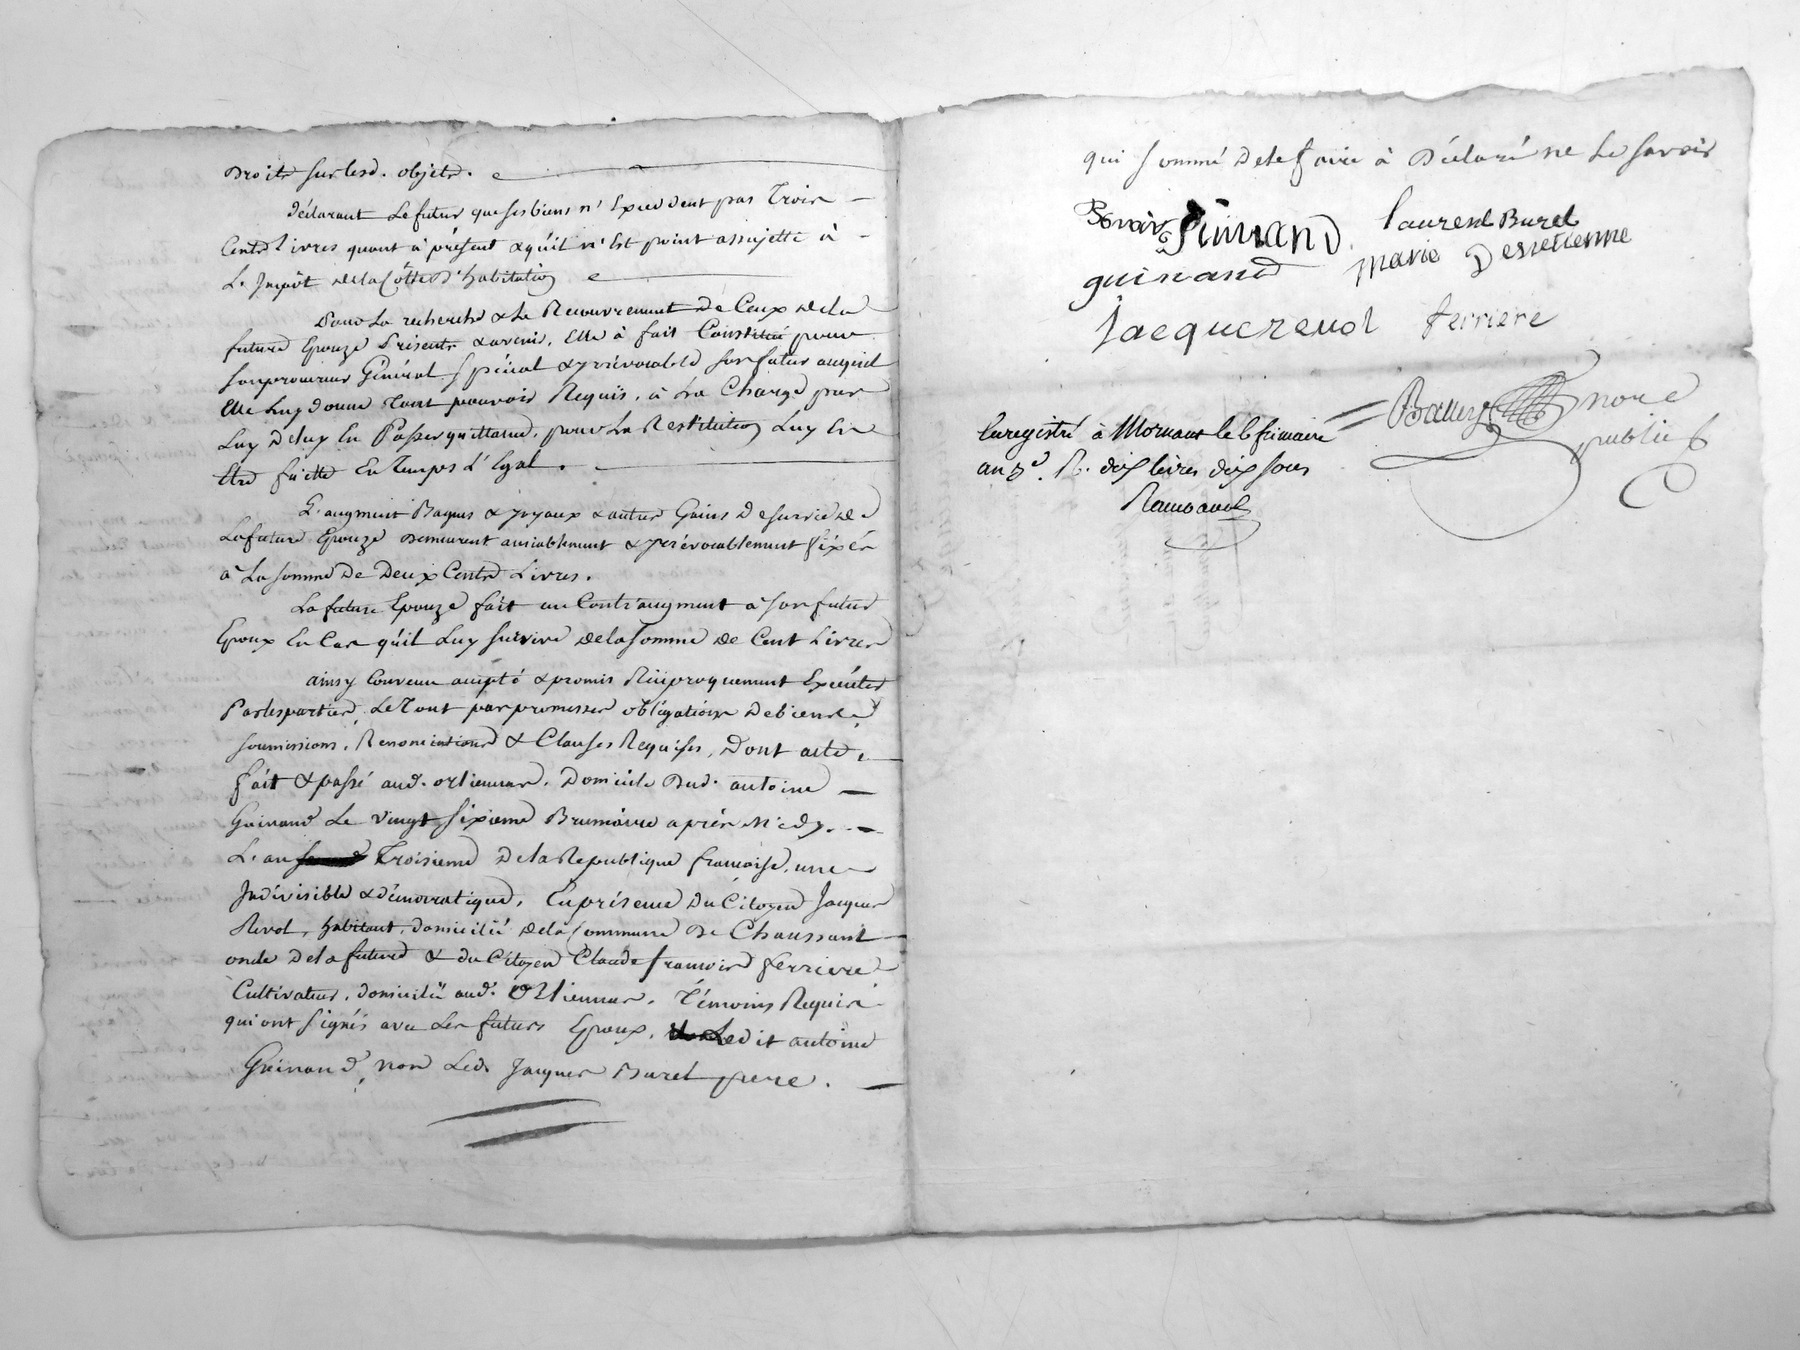 Droits sur lesd. objets.
déclarant Le futur que ses biens n'Excedent pas Trois
Cents Livres quant à présent & qu'il n'Est point assujetti à
L'Impôt de la Côtte d'habitation
Pour La recherche & Le Recouvrement de Ceux de la
future Epouze Présents & avenir, Elle à fait Constitué pour
son procureur Général Spécial & yrrévocable son futur auquel
Elle Luy donne Tout pouvoir Requis, à La Charge par
Luy de luy En Passer quittance, pour La Restitution Luy En
Etre faitte En Temps L'Egal.
L'augment Bagues & Joyaux & autres Gains de survie de
La future Epouze Demeurent amiablement & yrrévocablement fixés
à La somme De Deux Cents Livres.
La future Epouze fait un Contr'augment à son futur
Epoux En Cas qu'il Luy survive de la somme de Cent Livres
ainsy Convenu accepté & promis Réciproquement Exécuter
Par les parties, Le Tout par promesses obligations De biens
soumissions, Renonciations & Clauses Requises, Dont acte,
fait & passé aud. orliennas, Domicile Dud. antoine
Guinand Le vingt sixieme Brumaire après Midy.
L'an Troisieme De la Republique francoise, une
Indivisible & démocratique, En présence Du Citoyen Jacques
Revol, habitant, domicilié de la Commune De Chaussant
oncle De la future & du Citoyen Claude françois ferriere
Cultivateur, domicilié aud. Orliennas, Témoins Requis
qui ont signés avec Les futurs Epoux, Ledit antoine
Guinand, non Led. Jacques Burel pere.
qui sommé de le faire à Déclaré ne Le savoir
guinand Laurent Burel
guinand marie Desnetienne
Jacque revol ferriere
nore
public
Enregistré à Mornant le 6 frimaire
an 3e. R. dix livres dix sous